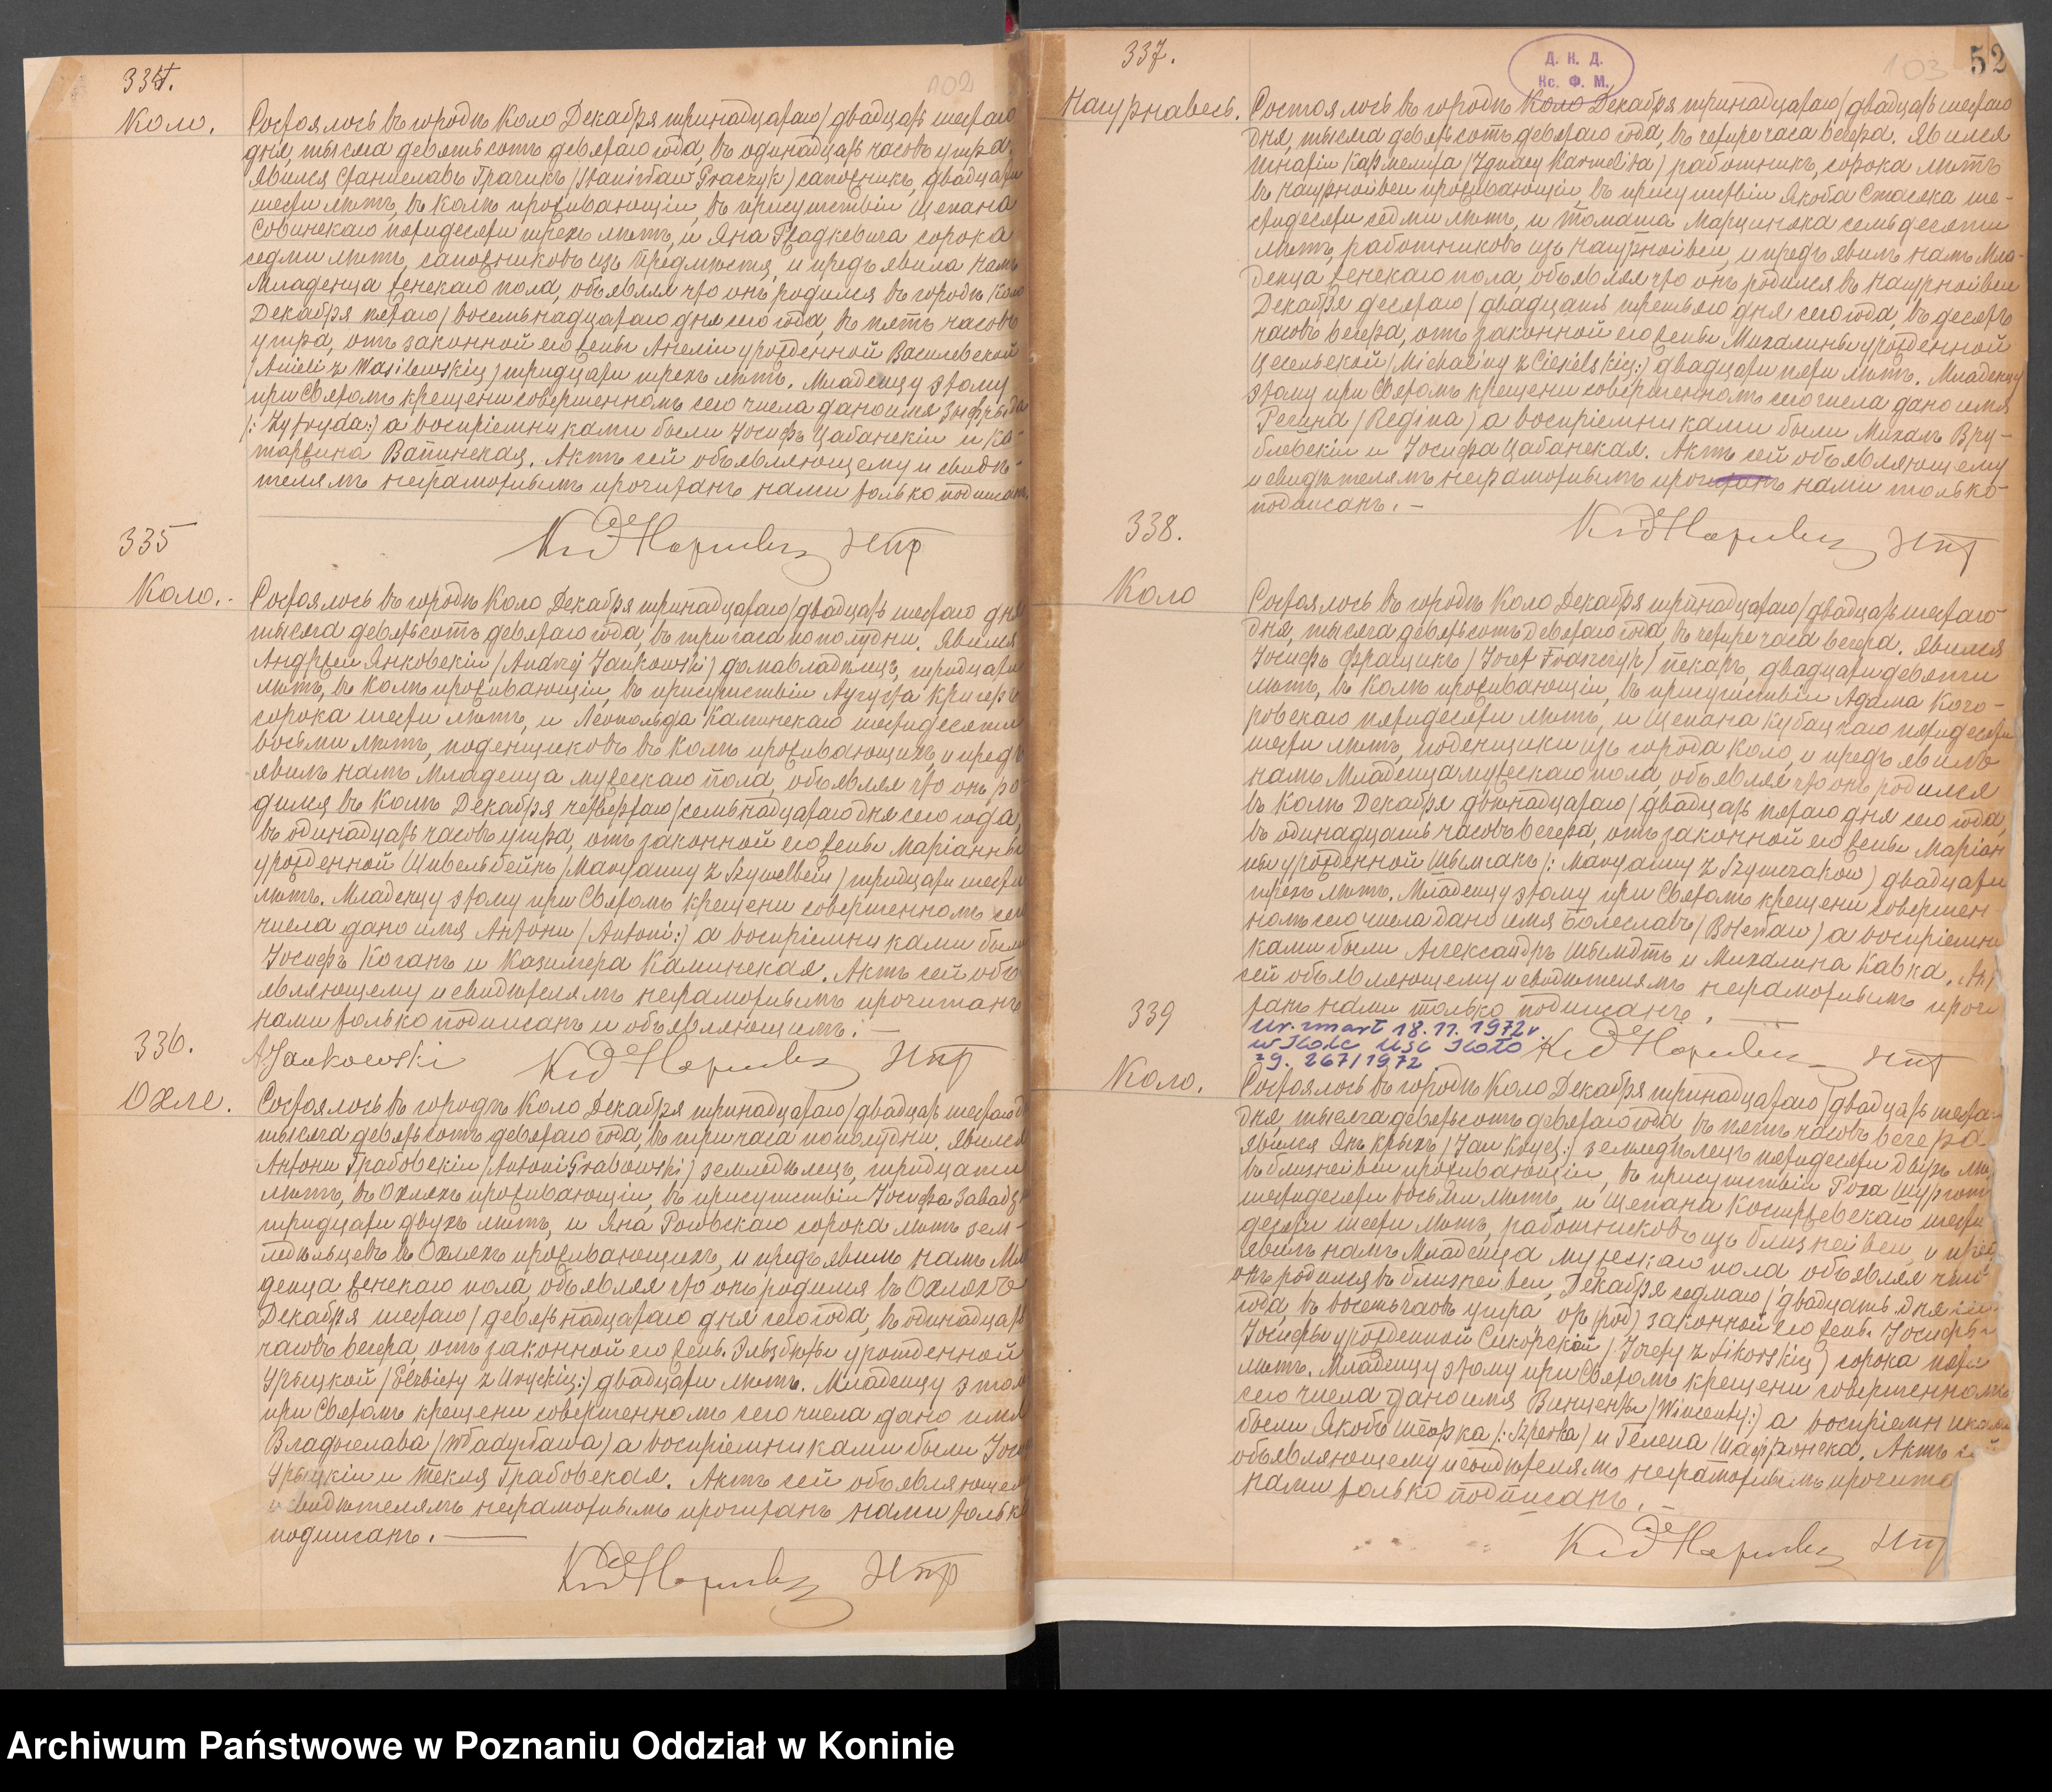 334.
102
Коло.
Состоялось въ городѣ Коло Декабря тринадцатаго/двадцать шестаго
дня, тысяча девятьсотъ девятаго года, въ одинадцать часовъ утра.
Явился Станиславъ Грачикъ /Stanisław Graczyk/ сапожникъ, двадцати
шести лѣтъ, въ Колѣ проживающій, въ присутствіи Щепана
пятидесяти трехъ лѣтъ, и Яна Гладкевича сорока
седми лѣтъ, сапожниковъ изъ предмѣстя, и предъявила намъ
Младенца женскаго пола, объявляя что онъ родился въ городѣ Коло
Декабря пятаго/восемьнадцатаго дня сего года, въ пять часовъ
утра, отъ законной его жены Анелiи урожденной Василевской
/Anieli z Wasilewskich/ тридцати трехъ лѣтъ. Младенцу этому
при Святомъ крещени совершенномъ сего числа дано имя
/: Zyfryda:/ а воспріемниками были Іосифъ Цабанскій и Ка-
таржина Вапинская. Актъ сей объявляющему и свидѣ-
телямъ неграмотнымъ прочитанъ нами только подписанъ.
335
Коло.
Состоялось въ городѣ Коло Декабря тринадцатаго/двадцать шестаго дня
тысяча девятьсотъ девятаго года, въ три часа пополудни. Явился
Андржей Янковскій /Andrzej Jankowski/ домавладѣлецъ, тридцати
лѣтъ, въ Колѣ проживающій, въ присутствіи Аугуста Кригеръ
сорока шести лѣтъ, и Леопольда Каминскаго шестидесяти
восьми лѣтъ, поденщиковъ въ Колѣ проживающихъ, и предъ
явилъ намъ Младенца мужескаго пола, объявляя что онъ ро-
дился въ Колѣ Декабря четвертаго/семьнадцатаго дня сего года,
въ одинадцать часовъ утра, отъ законной его жены Маріанны
урожденной Шивельбейнъ /Maryanny z Szywelbein/ тридцати шести
лѣтъ. Младенцу этому при Святомъ крещени совершенномъ сего
числа дано имя Антони /Antoni:/ а воспріемниками были
Іосифъ Коганъ и Казимера Каминская. Актъ сей объ
являющему и свидѣтелямъ неграмотнымъ прочитанъ
нами только подписанъ и объявляющимъ.
A Jankowski
336.
Охле.
Состоялось въ городѣ Коло Декабря тринадцатаго/двадцать шестаго
тысяча девятьсотъ девятаго года, въ три часа пополудни. Явился
Антони Грабовскій /Antoni Grabowski/ земледѣлецъ, тридцати
лѣтъ, въ Охляхъ проживающій, въ присутствіи Іосифа
тридцати двухъ лѣтъ, и Яна сорока лѣтъ зем-
ледѣльцевъ въ Охляхъ проживающихъ, и предъявилъ намъ Мла
денца женскаго пола, объявляя что онъ родился въ Охляхъ
Декабря шестаго/девятьнадцатаго дня сего года, въ одинадцать
часовъ вечера, отъ законной его жены Эльзбѣты урожденной
Урыцкой /Elzbiety z Uryckich:/ двадцати лѣтъ. Младенцу этому
при Святомъ крещени совершенномъ сего числа дано имя
Владыслава /Władysława/ а воспріемниками были
Урыцкій и Текля Грабовская. Актъ сей объявляющему
и свидѣтелямъ неграмотнымъ прочитанъ нами только
подписанъ.
337.
Д. К. Д.
Кс. Ф. М.
103
52
Нагурнавесь.
Состоялось въ городѣ Коло Декабря тринадцатаго/двадцать шестаго
дня, тысяча девятьсотъ девятаго года, въ четыре часа вечера. Явился
Игнацiи Кармелита /Ignacy Karmelita/ работникъ, сорока лѣтъ
въ Нагурнойвси проживающій, въ присутствіи Якоба Стасяка ше-
стидесяти седми лѣтъ, и Томаша Марциняка семьдесяти
лѣтъ, работниковъ изъ Нагурнойвси, и предъявилъ намъ Мла-
денца женскаго пола, объявляя что онъ родился въ Нагурнойвси
Декабря десятаго/двадцать третьяго дня сего года, въ десять
часовъ вечера, отъ законной его жены Михалины урожденной
Цесельской /Michaliny z Ciesielskich:/ двадцати пяти лѣтъ. Младенцу
этому при Святомъ крещени совершенномъ сего числа дано имя
Регина /Regina/ а воспріемниками были Михалъ Вру-
блевскій и Іосифа Цабанская. Актъ сей объявляющему
и свидѣтелямъ неграмотнымъ прочитанъ нами только
подписанъ.
338.
Коло
Состоялось въ городѣ Коло Декабря тринадцатаго/двадцать шестаго
дня, тысяча девятьсотъ девятаго года, въ четыре часа вечера. Явился
Іосифъ Фращикъ /Józef Fraszczyk/ пекарь, двадцати девяти
лѣтъ, въ Колѣ проживающій, въ присутствіи Адама Кого-
ровскаго пятидесяти лѣтъ, и Щепана Кубацкаго пятидесяти
шести лѣтъ, поденщики изъ города Коло, и предъявилъ
намъ Младенца мужескаго пола, объявляя что онъ родился
въ Колѣ Декабря двѣнадцатаго/двадцать пятаго дня сего года,
въ одинадцать часовъ вечера, отъ законной его жены Маріан
ны урожденной Шымчакъ /: Maryanny z Szymczaków/ двадцати
трехъ лѣтъ. Младенцу этому при Святомъ крещени совершен-
номъ сего числа дано имя Болеславъ /Bolesław/ а воспріемни
ками были Александръ Шмыдтъ и Михалина Кавка. Актъ
сей объявляющему и свидѣтелямъ неграмотнымъ прочи
танъ нами только подписанъ.
Ur. zmarł 18.11.1972 r.
w Kole USC Koło
zg. 267/1972
339
Коло.
Состоялось въ городѣ Коло Декабря тринадцатаго/двадцать шеста-
дня, тысяча девятьсотъ девятаго года въ пять часовъ вечера
Явился Янъ /Jan земледѣлецъ пятидесяти двухъ лѣ
въ близнейвси проживающій, въ присутствіи Роха
шестидесяти восьми лѣтъ, и Щепана шести
десяти шести лѣтъ, работниковъ изъ близнейвси, и предъ
явилъ намъ Младенца мужескаго пола объявляя что
онъ родился въ близнейвси, Декабря седмаго/двадцать дня сего
года, въ восемь часовъ утра законной его жены Іосифы
Іосифы урожденной Сикорской /Józefy z Sikorskich/ сорока пяти
лѣтъ. Младенцу этому при Святомъ крещени совершенномъ
сего числа дано имя Винценты /Wincenty:/ а воспріемниками
были Якобъ и Гелена Актъ сей
объявляющему и свидѣтелямъ неграмотнымъ прочита
нами только подписанъ.
Archiwum Państwowe w Poznaniu Oddział w Koninie